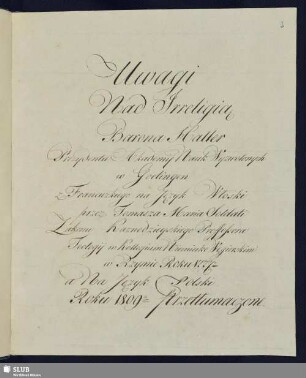 2
Uwagi
Nad Irreligią
Barona Haller
Prezydenta Akademij Nauk Wyzwolonych
w Getingen
z Francuzkiego na Język Włoski
przez Tomasza Maria Soldati
Zakonu Kaznodzieyskiego Professora
Teologij w Kollegium Niemiecko Węgierskim
w Rzymie Roku
a Na Język Polski
Roku 1809 Przetłumaczone
SLUB